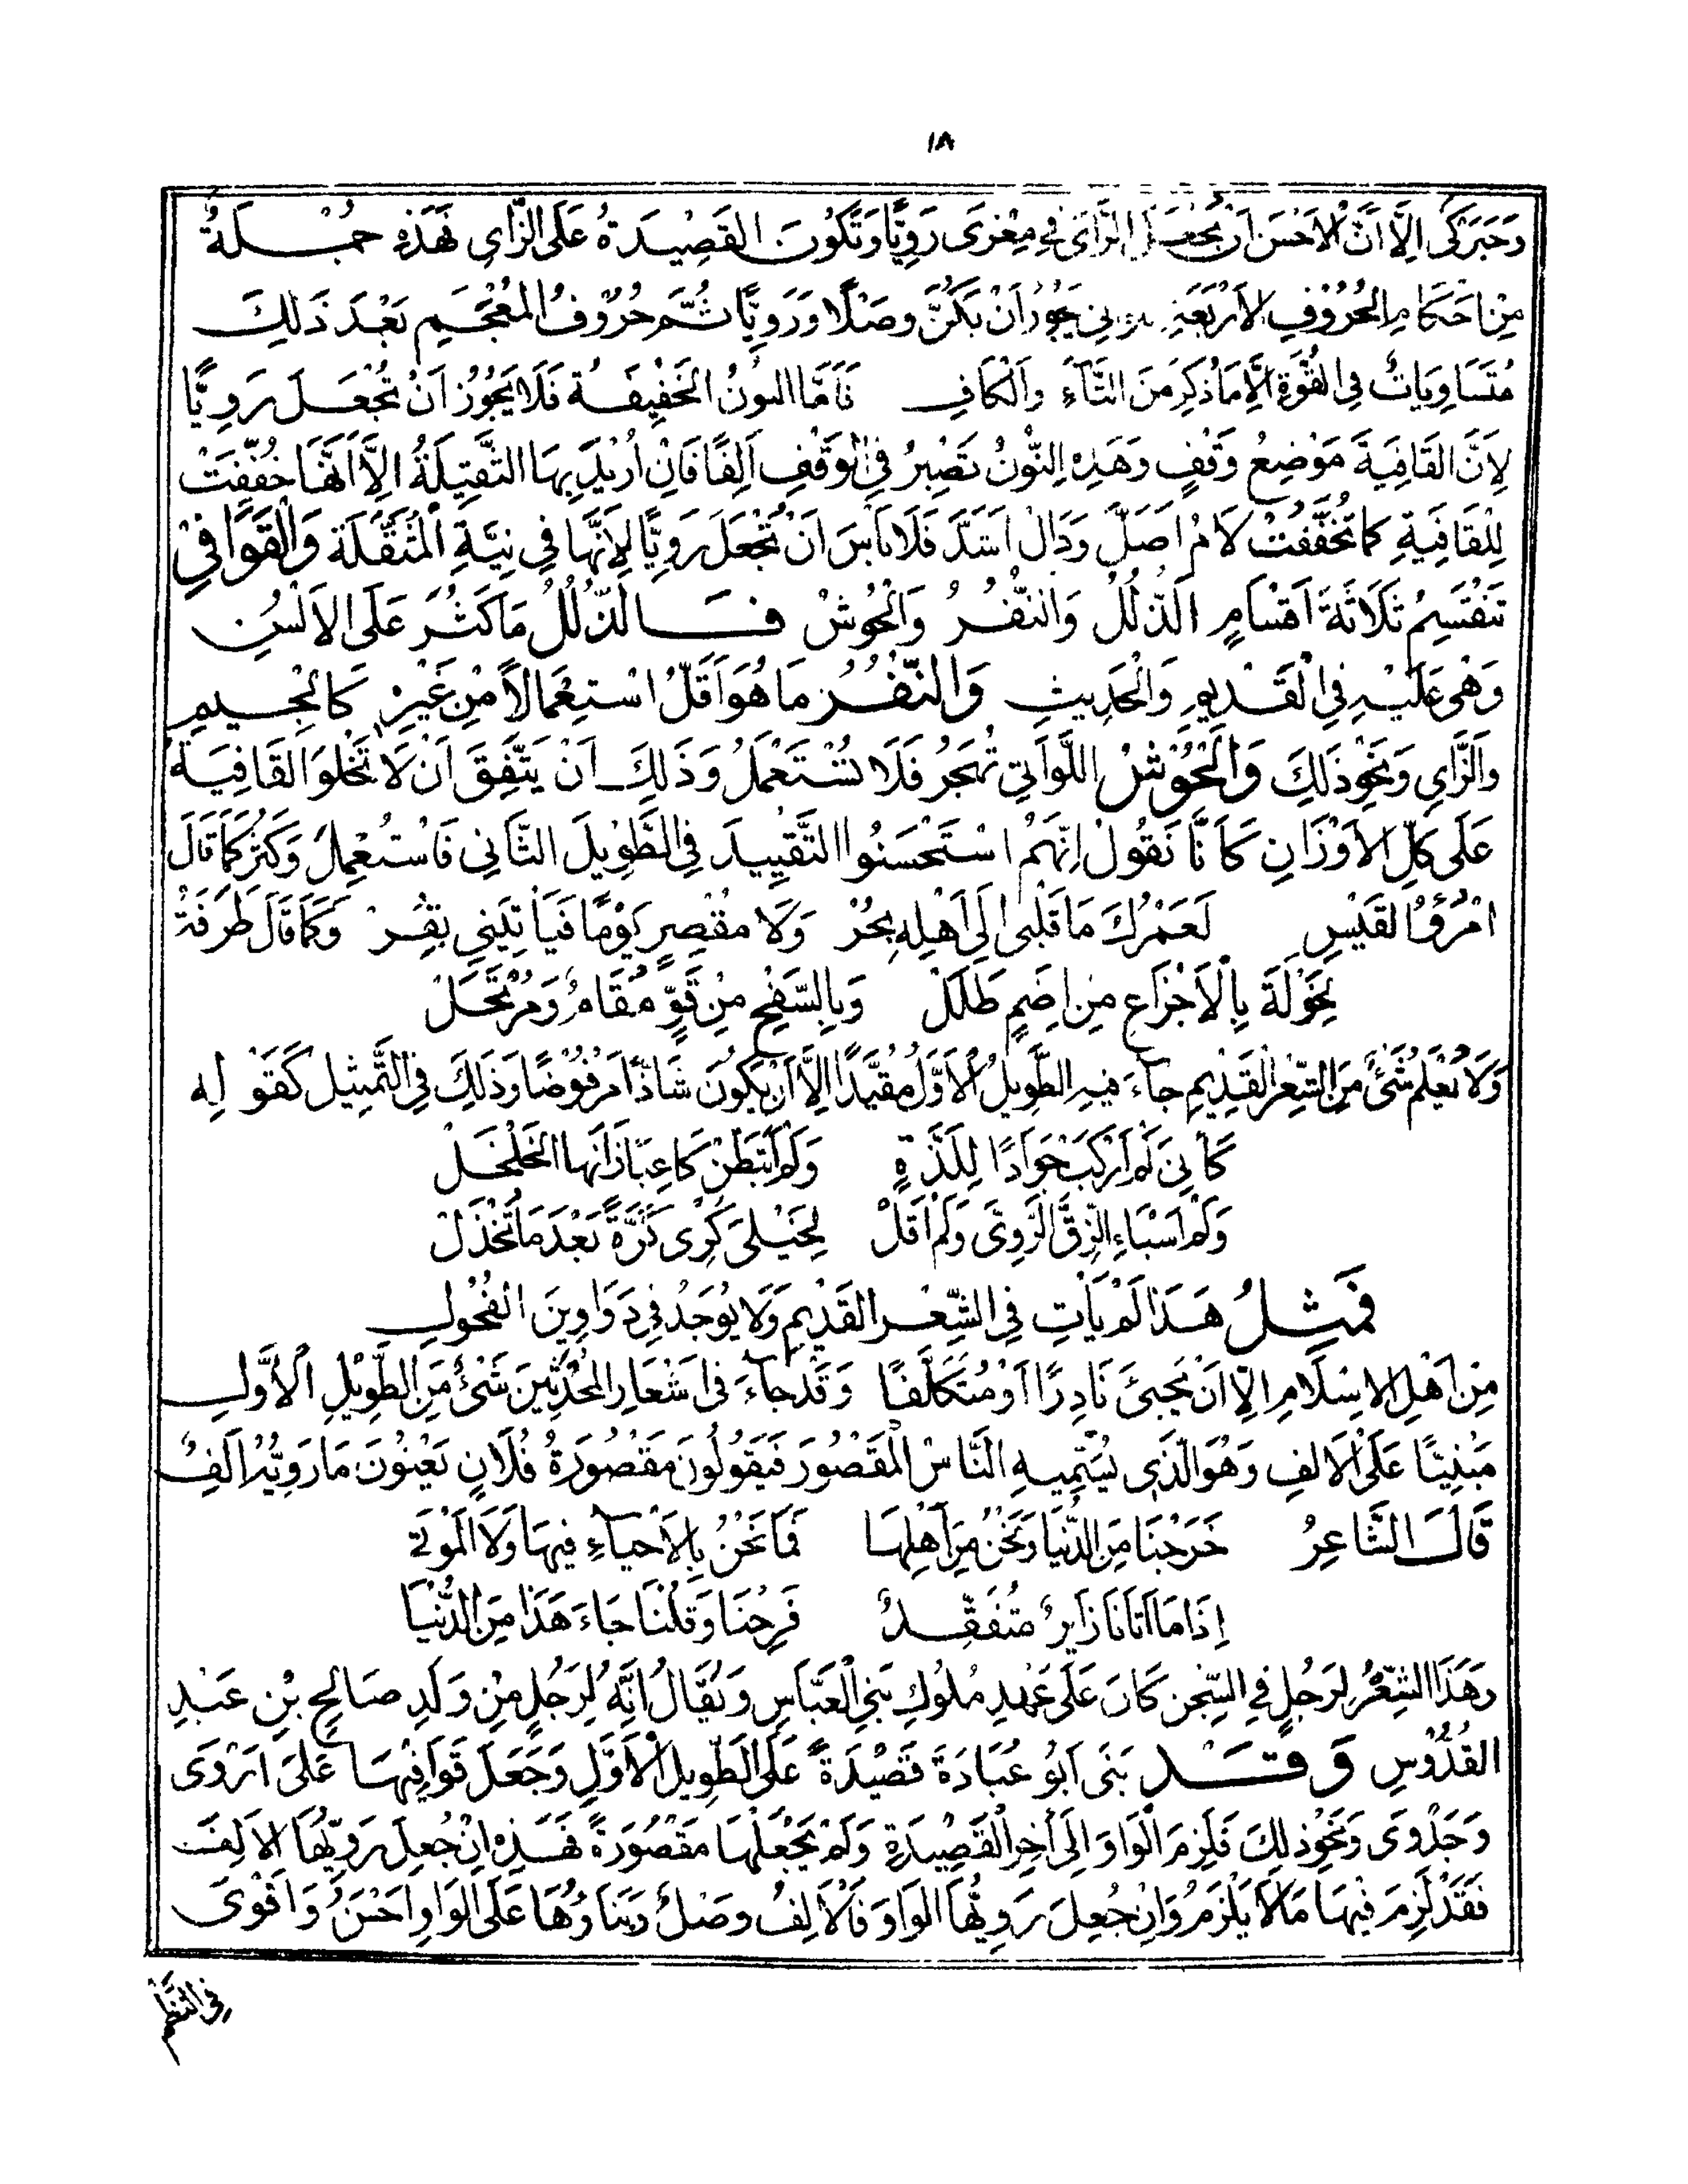 ١٨
وَحَبَرْكَى اِلَّا اَنَّ الْاَحْسَنَ اَنْ تُجْعَلَ الزَّاىُ فِى مِعْزَى رَوِيًّا وَتَكُونَ القَصِيْدَةُ عَلَى الزَّاىِ فَهَذِهِ جُمْلَةٌ
مِنْ اَحْكَامِ الحُرُوْفِ الاَرْبَعَةِ يَجُوْزُ اَنْ يَكُنَّ وَصْلًا وَرَوِيًّا ثُمَّ حُرُوْفُ المُعْجَمِ بَعْدَ ذَلِكَ
مُتَسَاوِيَاتٌ فِى القُوَّةِ اِلَّا مَا ذُكِرَ مِنَ التَّاءِ وَالْكَافِ فَاَمَّا النونُ الخَفِيفَةُ فَلَا يَجُوْزُ اَنْ تُجْعَلَ رَوِيًّا
لِاَنَّ القَافِيَةَ مَوْضِعُ وَقْفٍ وَهَذِهِ النُّوْنُ تَصِيْرُ فِى الوَقْفِ اَلِفًا فَاِنْ اُرِيْدَ بِهَا الثَّقِيْلَةُ اِلَّا اَنَّهَا خُفِّفَتْ
لِلْقَافِيَةِ كَمَا تُخَفَّفُ لَامُ اَصَلَّ وَدَالُ اَشَدَّ فَلَا بَأْسَ اَنْ تُجْعَلَ رَوِيًّا لِاَنَّهَا فِى نِيَّةِ الْمُثَقَّلَةِ وَالْقَوَافِىْ
تَنْقَسِمُ ثَلَاثَةَ اَقْسَامٍ الَذُّلُلُ وَالنُّفُرُ وَالْحُوْشْ فَالذُّلُلُ مَا كَثُرَ عَلَى الاَلْسُنِ
وَهْىَ عَلَيْهِ فِى الْقَدِيْمِ وَالْحَدِيثِ وَالنُّفُرُ مَا هُوَ اَقَلُّ اسْتِعْمَالًا مِنْ غَيْرِهْ كَالْجِيمِ
وَالزَّاىِ وَنَحْوِ ذَلِكَ وَالْحُوْشُ اللَّوَاتِى تُهْجَرُ فَلَا تُسْتَعْمَلُ وَذَلِكَ اَنْ يَتَّفِقَ اَنْ لَا تَخْلُوَ القَافِيَةُ
عَلَى كُلِّ الاَوْزَانِ كَأَنَّا نَقُولُ اِنَّهُمُ اسْتَحْسَنُوا التَّقْيِيدَ فِى الطَّوِيْلِ الثَّانِى فَاسْتُعْمِلَ وَكَثُرَ كَمَا قَالَ
امْرُؤُ القَيْسِ لَعَمْرُكَ مَا قَلْبِى اِلَى اَهْلِهِ بِحُرْ وَلَا مُقْصِرٍ يَوْمًا فَيَأتِيَنِى بِقُرْ وَكَمَا قَالَ طَرَفَةُ
لِخَوْلَةَ بِالْاَجْزَاعِ مِنْ اِضَمٍ طَلَلْ وَبِالسَّفْحِ مِنْ قَوٍّ مُقَامٌ وَمُرْتَحَلْ
وَلَا نَعْلَمُ شَئٌ مِنَ الشِّعْرِ القَدِيْمِ جَاءَ فِيْهِ الطَّوِيلُ الْاَوَّلُ مُقَيَّدًا اِلَّا اَنْ يَكُوْنَ شَاذًّا مَرْفُوْضًا وَذَلِكَ فِى التَّمْثِيلِ كَقَوْلِه
كَاَنِىَ لَمْ اَرْكَبْ جَوَادًا لِلَذَّةٍ وَلَمْ اَتَبَطَّنْ كَاعِبًا زَانَهَا الخَلْخَلْ
وَلَمْ اَسْبَاءِ الزِّقَّ الرَّوِىَّ وَلَمْ اَقُلْ لِخَيْلِىَ كُرِّى كَرَّةً بَعْدَ مَا تُخْذَلْ
فَمِثْلُ هَذَا لَمْ يَأْتِ فِى الشِّعْرِ القَدِيْمِ وَلَا يُوْجَدُ فِى دَوَاوِينَ الفُحُوْلِ
مِنْ اَهْلِ الاِسْلَامِ اِلَّا اَنْ يَجِىْءَ نَادِرًا اَوْ مُتَكَلَّفًا وَقَدْ جَاءَ فِى اَشْعَارِ المُحْدَثِيْنَ شَئٌ مِنَ الطَّوِيْلِ الْاَوَّلِ
مَبْنِيًّا عَلَى الْاَلِفِ وَهُوَ الَّذِى يُسَمِّيهِ النَّاسُ المَقْصُورَ فَيَقُولُونَ مَقْصُوْرَةُ فُلَانٍ يَعْنُوْنَ مَا رَوِيُّهُ اَلِفٌ
قَالَ الشَّاعِرُ خَرَجْنَا مِنَ الدُّنْيَا وَنَحْنُ مِنَ اَهْلِهَا فَمَا نَحْنُ بِالاَحْيَاءِ فِيهَا وَلَا الْمَوْتَى
اِذَا مَا اَتَانَا زَايِرٌ مُتَفَقِّدٌ فَرِحْنَا وَقُلْنَا جَاءَ هَذَا مِنَ الدُّنْيَا
وَهَذَا الشِّعْرُ لِرَجُلٍ فِى السِّجْنِ كَانَ عَلَى عَهْدِ مُلُوكِ بَنِى الْعَبَّاسِ وَيُقَالُ اِنَّهُ لِرَجُلٍ مِنْ وَلَدِ صَالِحِ بْنِ عَبْدِ
القُدُّوْسِ وَقَدْ بَنَى اَبُو عُبَادَةَ قَصِيْدَةً عَلَى الطَّوِيلِ الْاَوَّلِ وَجَعَلَ قَوَافِيْهَا عَلَى اَرْوَى
وَجَدْوَى وَنَحْوِ ذلِكَ فَلَزِمَ الْوَاوَ اِلَى آخِرِ الْقَصِيْدَةِ وَلَمْ يَجْعَلْهَا مَقْصُوْرَةً فَهَذِهِ اِنْ جُعِلَ رَوِيُّهَا الاَلِفَ
فَقَدْ لَزِمَ فِيْهَا مَا لَا يَلْزَمُ وَاِنْ جُعِلَ رَوِيُّهَا الوَاوَ فَالْاَلِفُ وَصْلٌ وَبِنَاؤُهَا عَلَى الوَاوِ اَحْسَنُ وَاَقْوَى
فِى النَّظْمِ